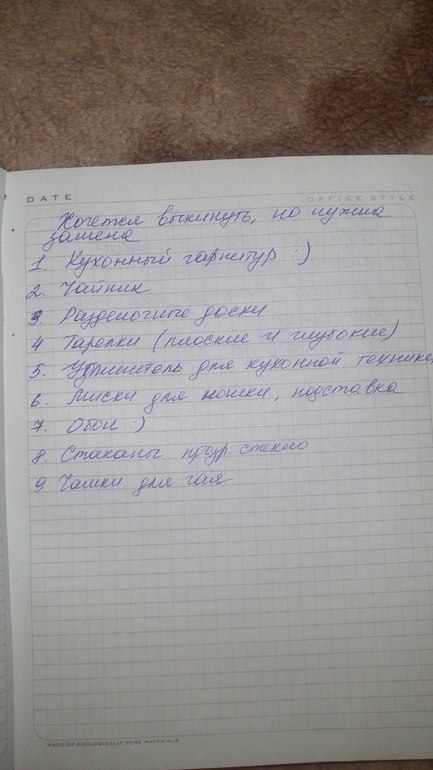 DATE
OFFICE STYLE
Хочется выкинуть, но нужна
замена
1. Кухонный гарнитур :)
2. Чайник
3. Разделочные доски
4 Тарелки (плоские и глубокие)
5. Удлинитель для кухонной техники
6. Миски для кошки, подставка
7. Обои :)
8. Стаканы прозр стекло
9 Чашки для чая
MADE OF ECOLOGICALLY PURE MATERIALS